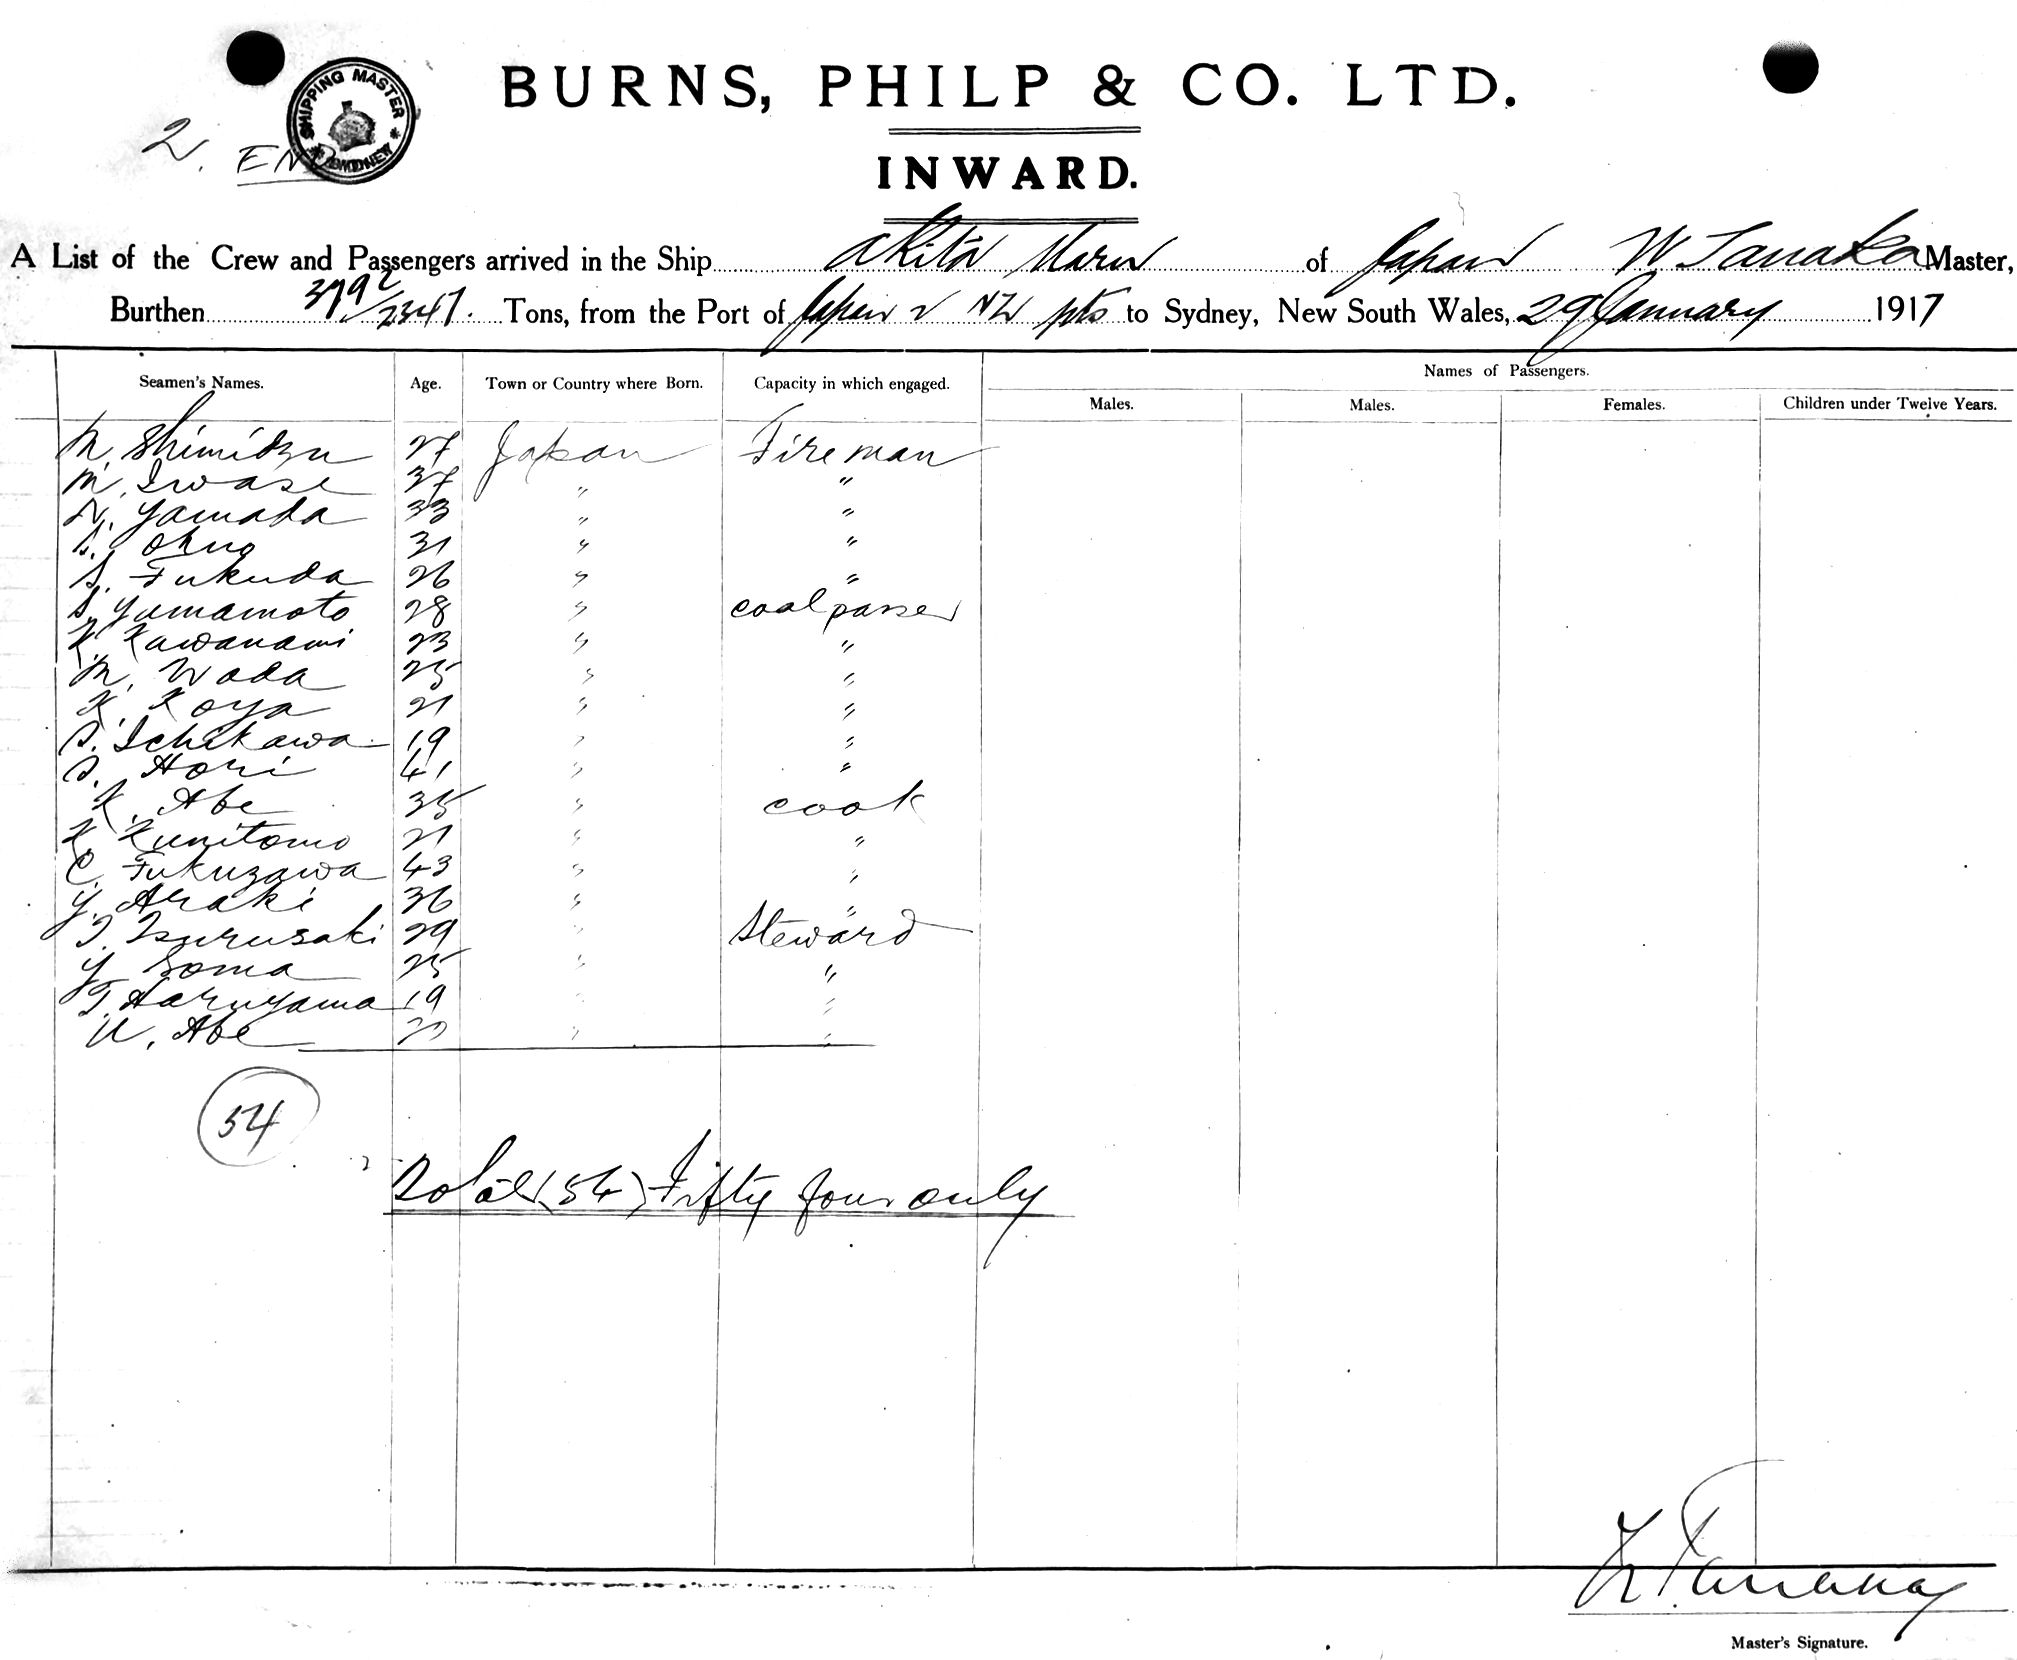 BURNS, PHILP & CO. LTD.
SHIPPING MASTER SYDNEY
2. END
INWARD.
A List of the Crew and Passengers arrived in the Ship Akita Maru of Japan W Tanaka Master,
Burthen 3792/2347. Tons, from the Port of Japan & NZ pts to Sydney, New South Wales, 29 January 1917
Seamen's Names. Age. Town or Country where Born. Capacity in which engaged. Names of Passengers.
Males. Males. Females. Children under Twelve Years.
M. Shimidzu 27 Japan Fireman
M. Iwase 37 " "
N. Yamada 33 " "
S. Okuo 31 " "
S. Fukuda 26 " "
S. Yamamoto 28 " coalpasser
K. Kawanami 23 " "
M. Wada 25 " "
K. Koya 21 " "
S. Ichikawa 19 " "
S. Hori 41 " "
K. Abe 35 " cook
K. Kunitomo 21 " "
C. Fukuzawa 43 " "
Y. Araki 36 " "
T. Tsurusaki 29 " Steward
Y. Soma 25 " "
T. Haruyama 19 " "
U. Abe " "
54
Total (54) Fifty four only
Tanaka
Master's Signature.